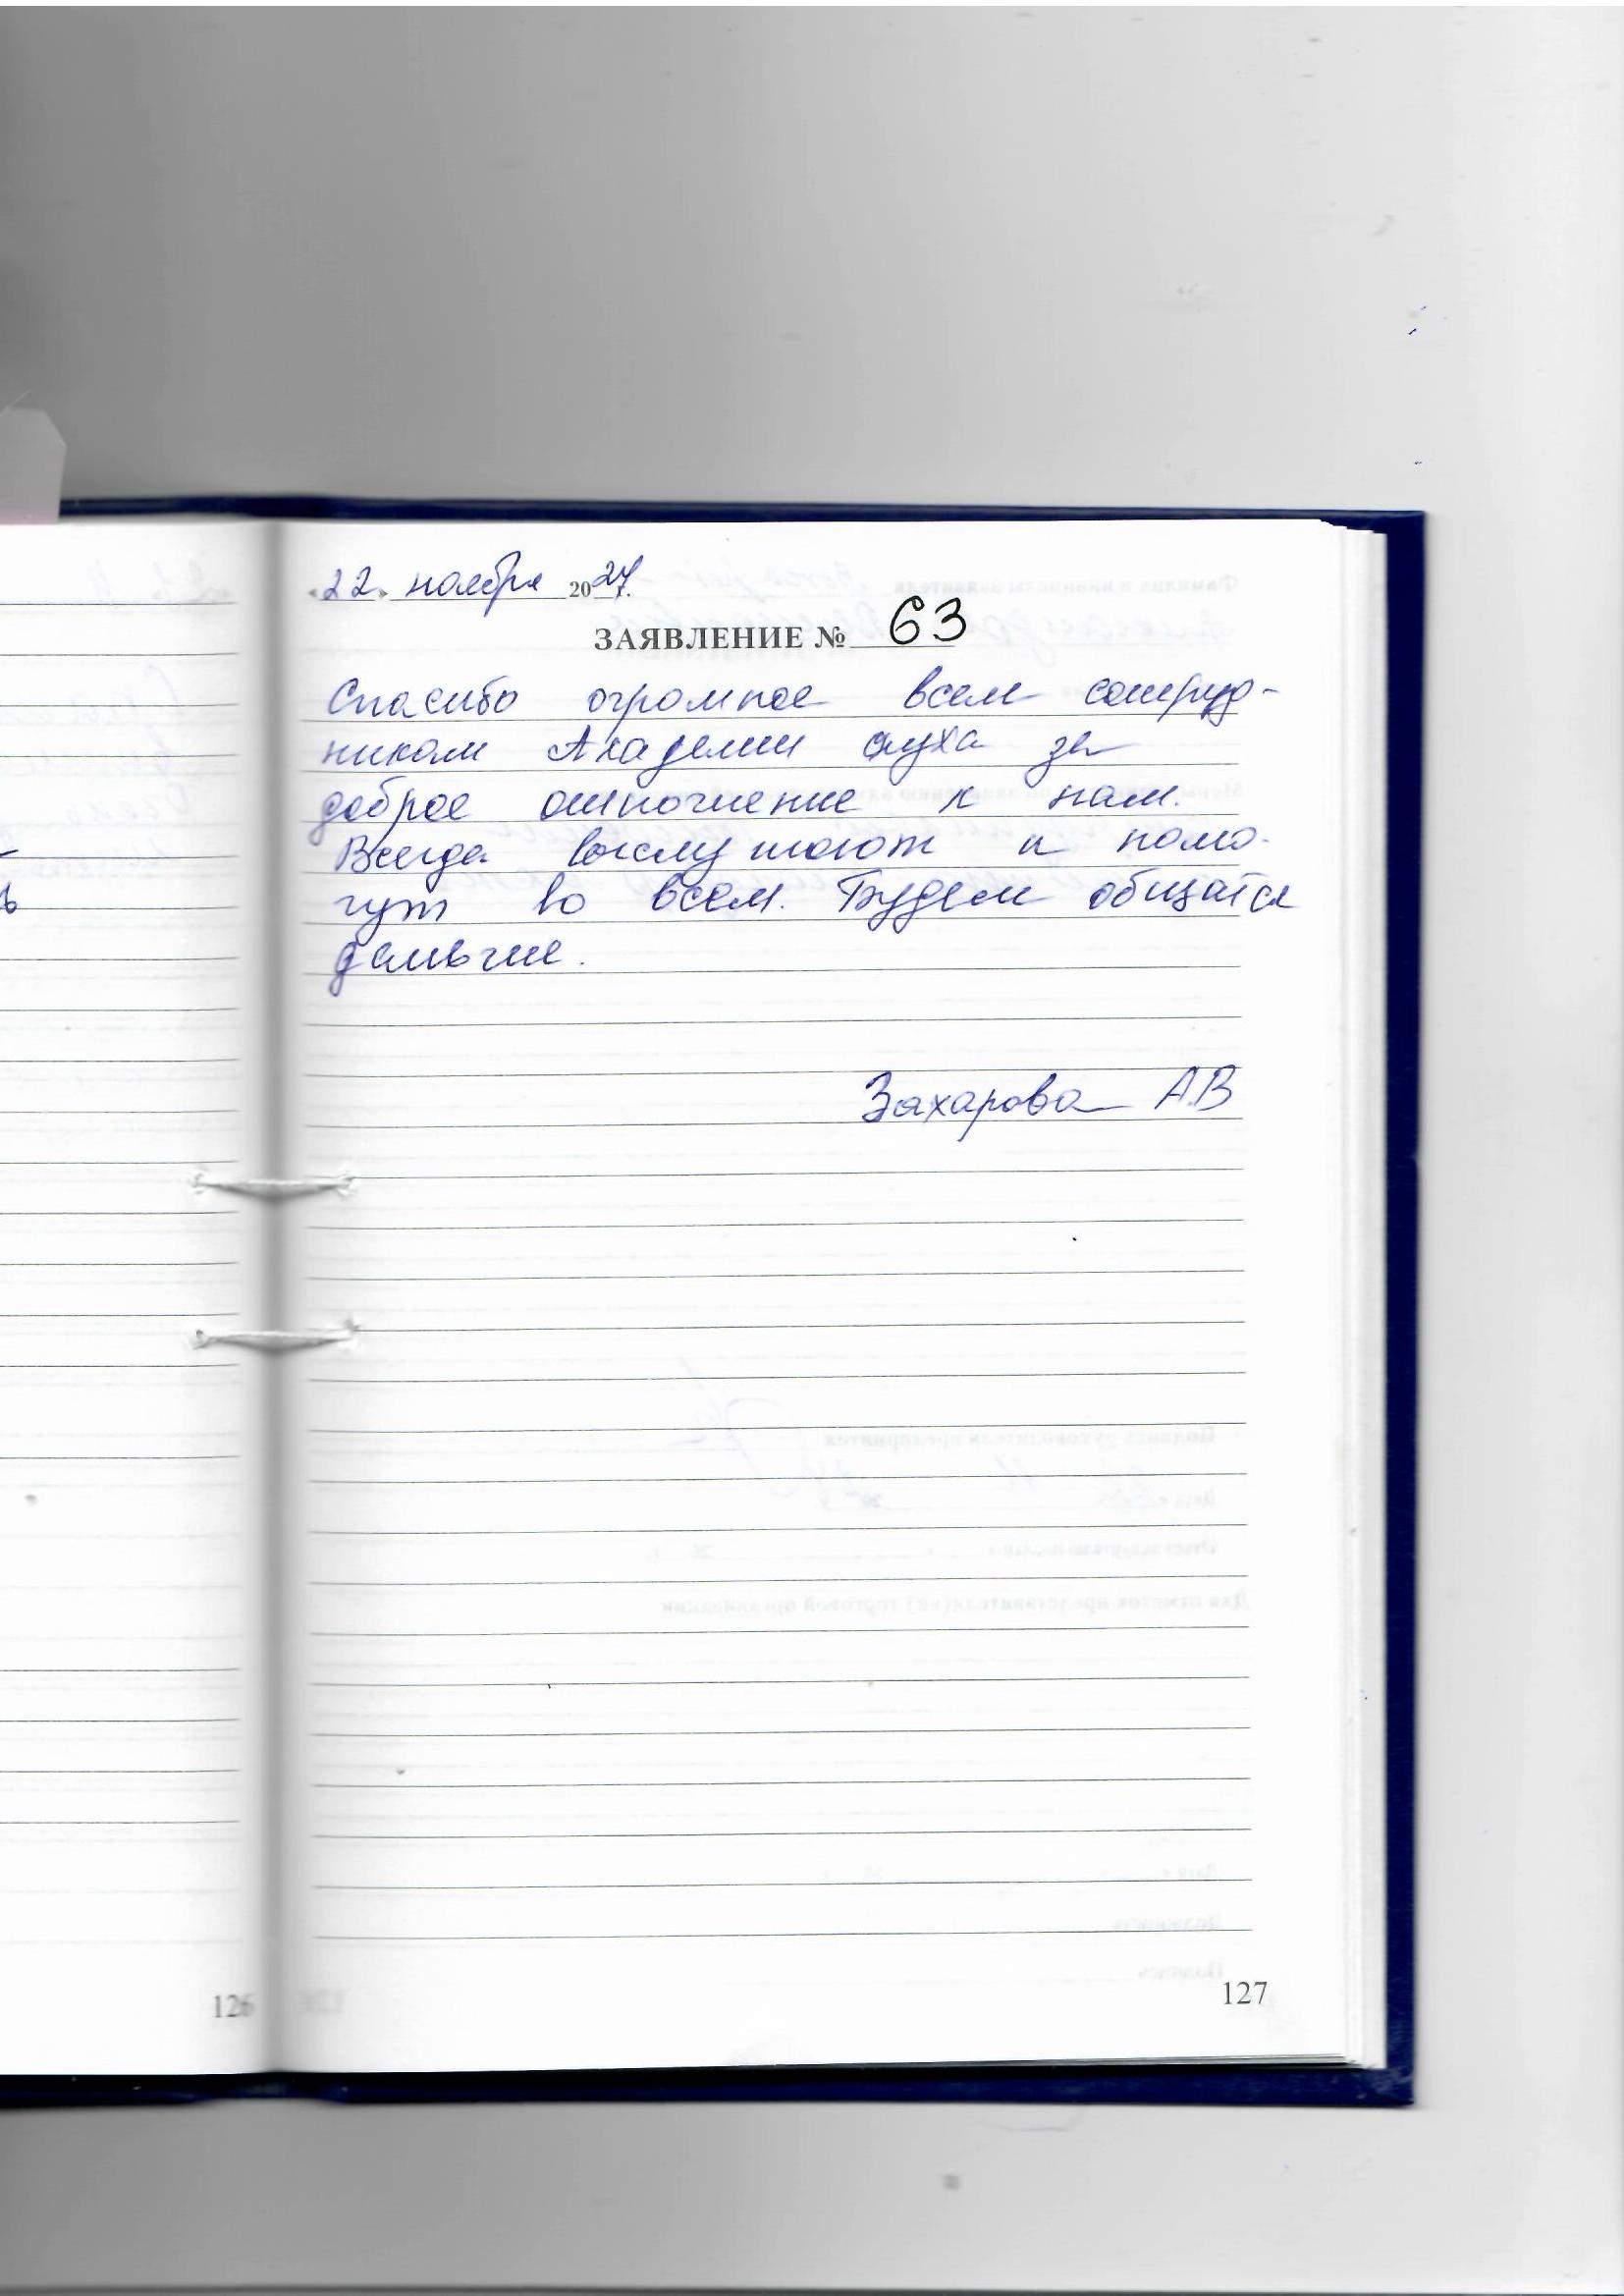 «22» ноября 2024г.
ЗАЯВЛЕНИЕ № 63
Спасибо огромное всем сотруд-
никам Академии слуха за
доброе отношение к нам.
Всегда выслушают и помо-
гут во всем. Будем общатся
дальше.
Захарова А.В
126
127